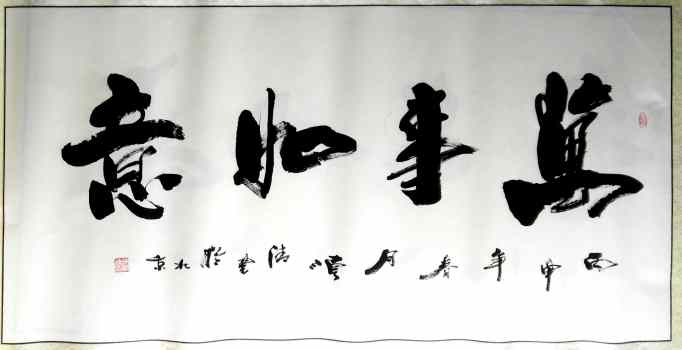 萬事如意
丙申年春月 清 於北京